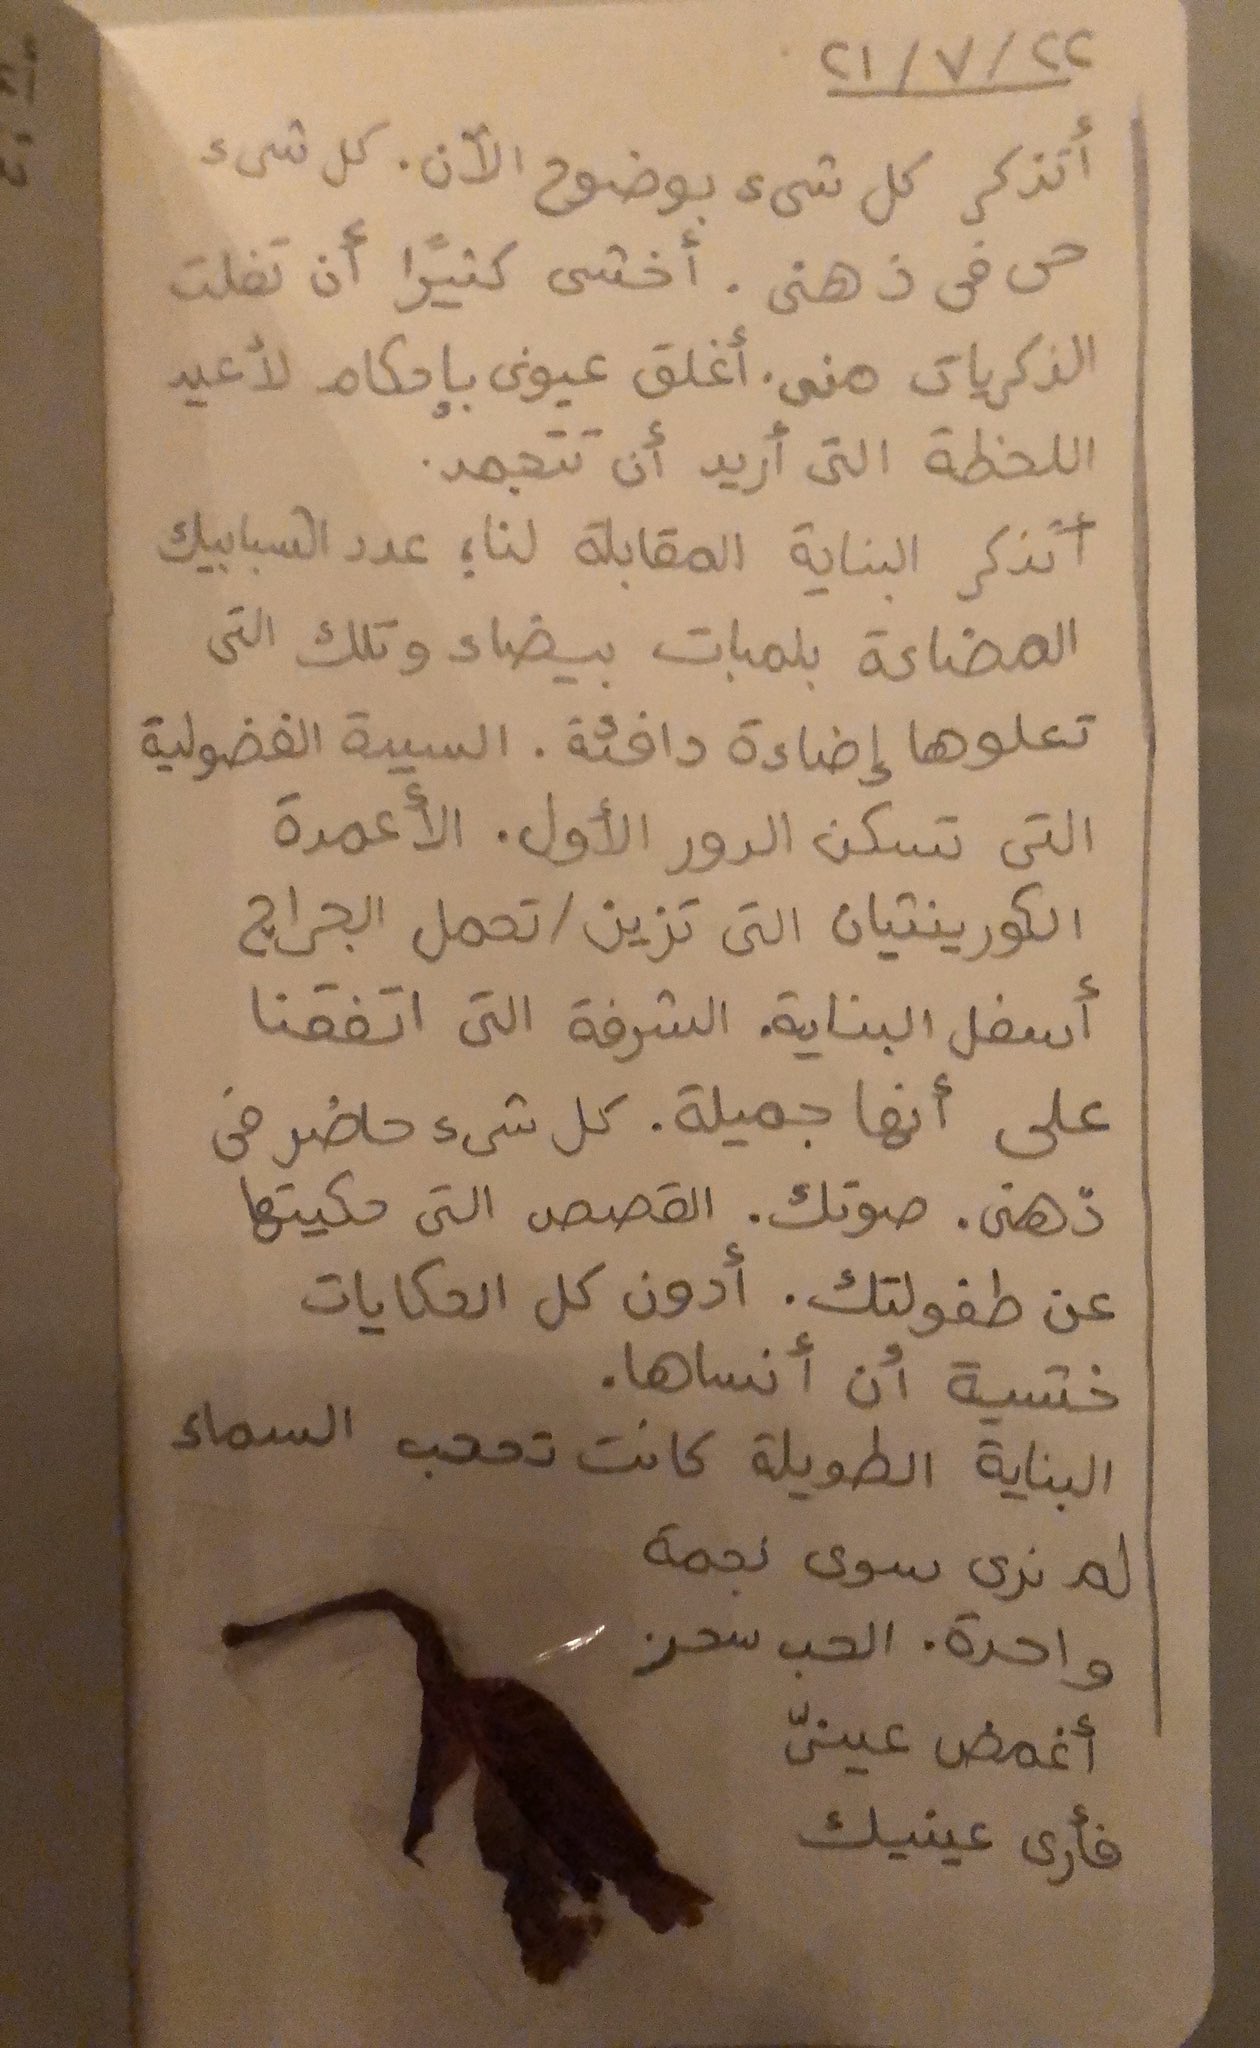 ٢١/٧/٢٢
أتذكر كل شىء بوضوح الآن. كل شىء
حى فى ذهنى. أخشى كثيرًا أن تفلت
الذكريات منى. أغلق عيونى بإحكام لأعيد
اللحظة التى أريد أن تتجمد.
أتذكر البناية المقابلة لنا؛ عدد الشبابيك
المضاءة بلمبات بيضاء وتلك التى
تعلوها إضاءة دافئة. السيدة الفضولية
التى تسكن الدور الأول. الأعمدة
الكورينتيان التى تزين/تحمل الجراج
أسفل البناية. الشرفة التى اتفقنا
على أنها جميلة. كل شىء حاضر فى
ذهنى. صوتك. القصص التى حكيتها
عن طفولتك. أدون كل الحكايات
خشية أن أنساها.
البناية الطويلة كانت تحجب السماء
لم نرى سوى نجمة
واحدة. الحب سحر.
أغمض عينىّ
فأرى عينيك